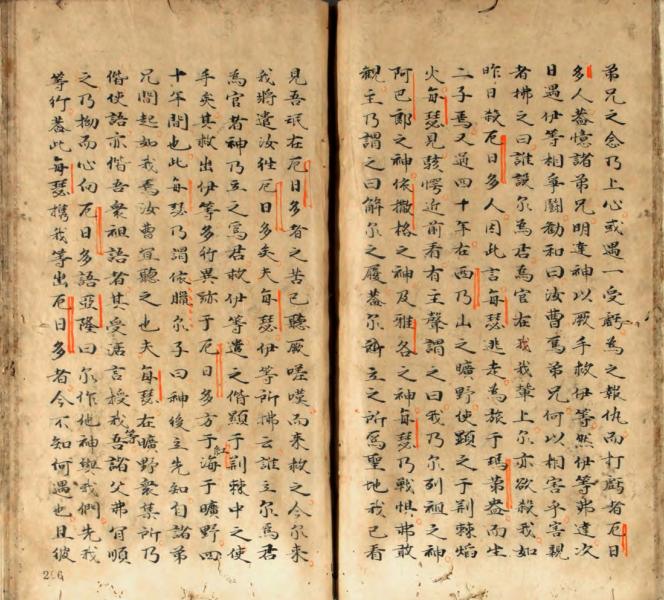 弟兄之念乃上心或遇一受虧為之報仇而打虧者厄日
多人蓋憶諸弟兄明達神以厥手救伊等然伊等弗達次
日遇伊等相爭鬭勸和曰汝曹焉弟兄何以相害乎害親
者拂之曰誰設尔為君為官在我輩上尔亦欲殺我如
昨日殺厄日多人因此言每瑟逃走為旅于瑪弟盎而生
二子焉又過四十年在西乃山之曠野使顯之于荊棘焰
火每瑟見駭愕近前看有主聲謂之曰我乃尔列祖之神
阿巴郎之神依撒格之神及雅各之神每瑟乃戰惧弗敢
觀主乃謂之曰解尔之履蓋尔所立之所為聖地我已看
見吾民在厄日多者之苦已聽厥嗟嘆而來救之今尔來
我將遣汝往厄日多矣夫每瑟伊等所拂云誰立尔為君
為官者神乃立之為君救伊等遣之偕顯于荊棘中之使
手矣其救出伊等多行異跡于厄日多方于紅海于曠野四
十年間也此每瑟乃謂依臘尔子曰神後立先知自諸弟
兄間起如我焉汝曹宜聽之也夫每瑟在曠野衆集所乃
偕使語亦偕吾衆祖語者其受活言授我等吾諸父弗肯順
之乃拗而心向厄日多語亞隆曰尔作他神與我們先我
等行蓋此每瑟携我等出厄日多者今不知何遇也且彼